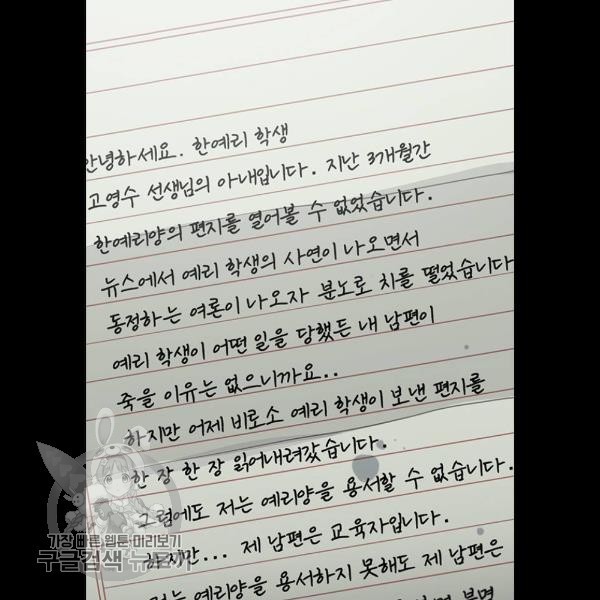 안녕하세요. 한예리 학생
고영수 선생님의 아내입니다. 지난 3개월간
한예리양의 편지를 열어볼 수 없었습니다.
뉴스에서 예리 학생의 사연이 나오면서
동정하는 여론이 나오자 분노로 치를 떨었습니다
예리 학생이 어떤 일을 당했든 내 남편이
죽을 이유는 없으니까요..
하지만 어제 비로소 예리 학생이 보낸 편지를
한 장 한 장 읽어내려갔습니다.
그럼에도 저는 예리양을 용서할 수 없습니다.
하지만... 제 남편은 교육자입니다.
저는 예리양을 용서하지 못해도 제 남편은
분명
가장 빠른 웹툰 미리보기
구글검색